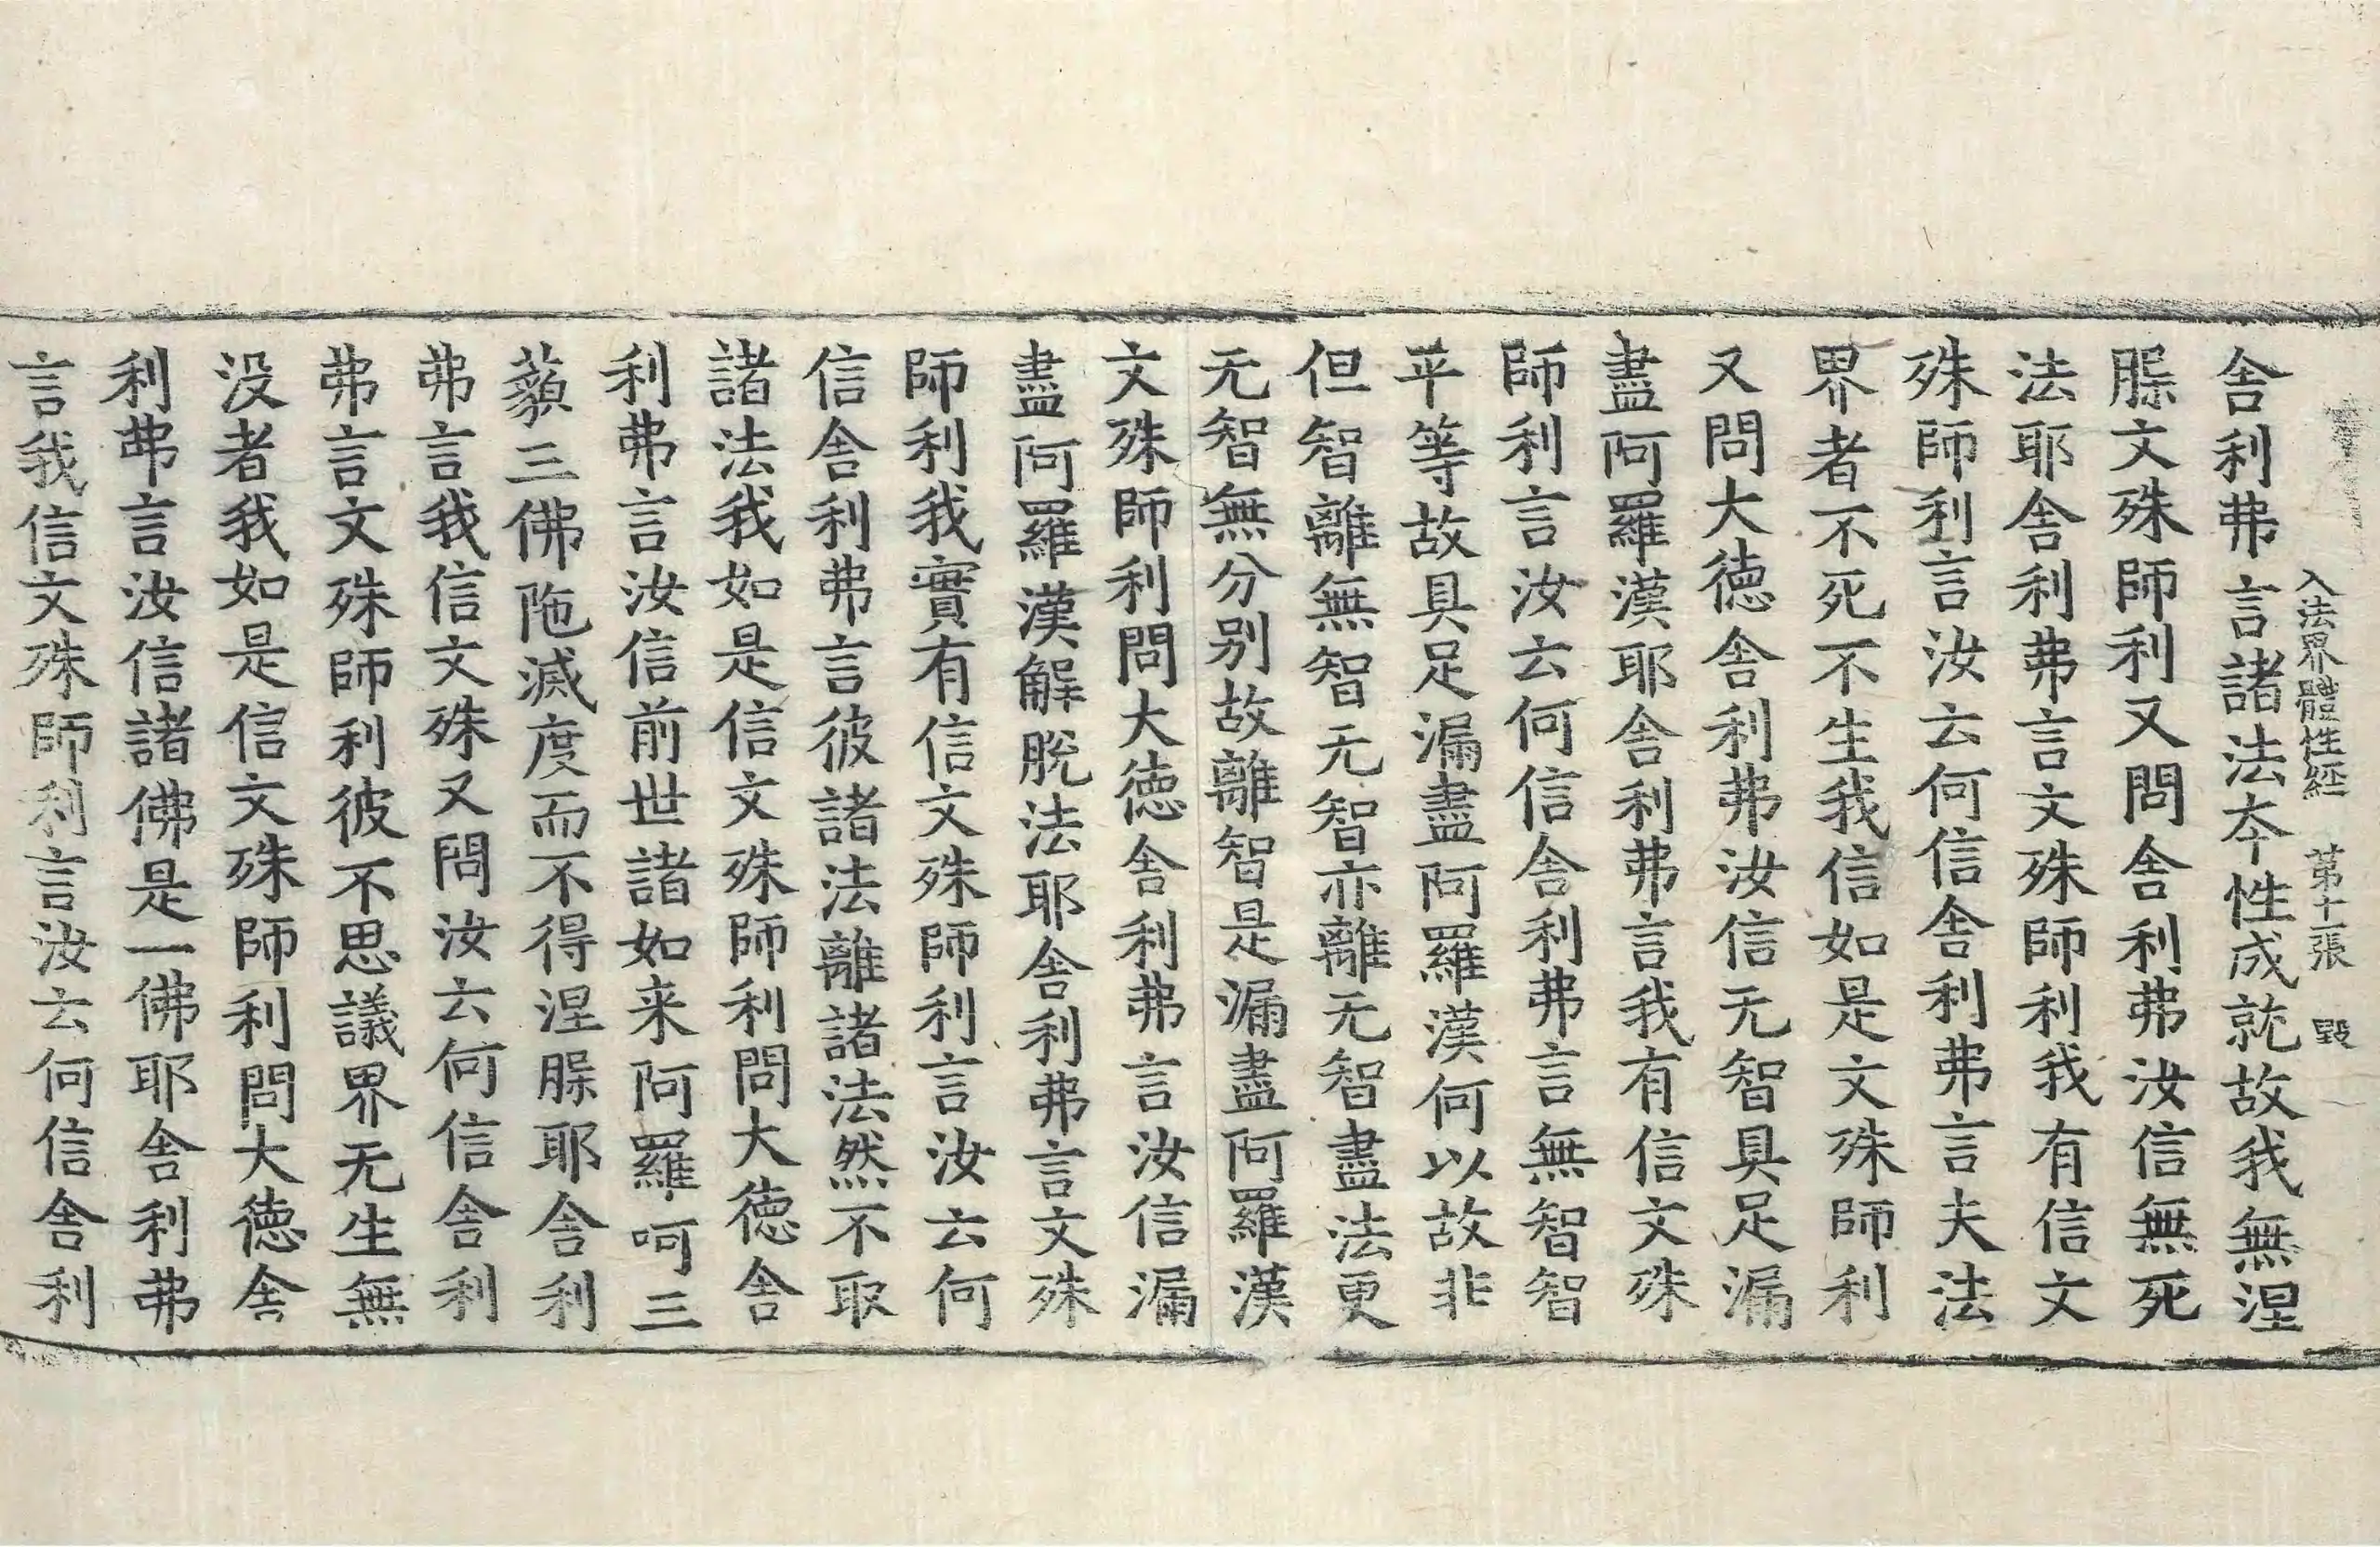 入法界體性經 第十一張 毀
舎利弗言諸法夲性成就故我無涅
䏶文殊師利又問舎利弗汝信無死
法耶舎利弗言文殊師利我有信文
殊師利言汝云何信舎利弗言夫法
界者不死不生我信如是文殊師利
又問大徳舎利弗汝信无智具足漏
盡阿羅漢耶舎利弗言我有信文殊
師利言汝云何信舎利弗言無智智
平等故具足漏盡阿羅漢何以故非
但智離無智无智亦離无智盡法更
无智無分别故離智是漏盡阿羅漢
文殊師利問大徳舎利弗言汝信漏
盡阿羅漢解脫法耶舎利弗言文殊
師利我實有信文殊師利言汝云何
信舎利弗言彼諸法離諸法然不取
諸法我如是信文殊師利問大徳舎
利弗言汝信前世諸如来阿羅呵三
藐三佛陁滅度而不得涅䏶耶舎利
弗言我信文殊又問汝云何信舎利
弗言文殊師利彼不思議界无生無
没者我如是信文殊師利問大徳舎
利弗言汝信諸佛是一佛耶舎利弗
言我信文殊師利言汝云何信舎利